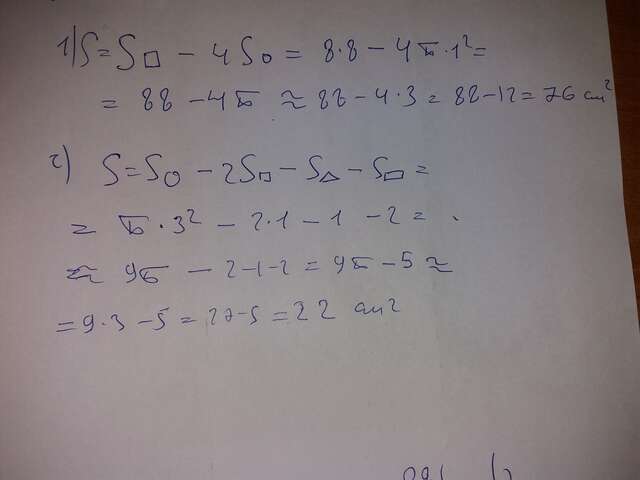 1) S = S□ - 4S○ = 8·8 - 4π·1² =
= 88 - 4π ≈ 88 - 4·3 = 88 - 12 = 76 см²
2) S = S○ - 2S□ - S△ - S□ =
= π·3² - 2·1 - 1 - 2 =
≈ 9π - 2 - 1 - 2 = 9π - 5 ≈
= 9·3 - 5 = 27 - 5 = 22 см²